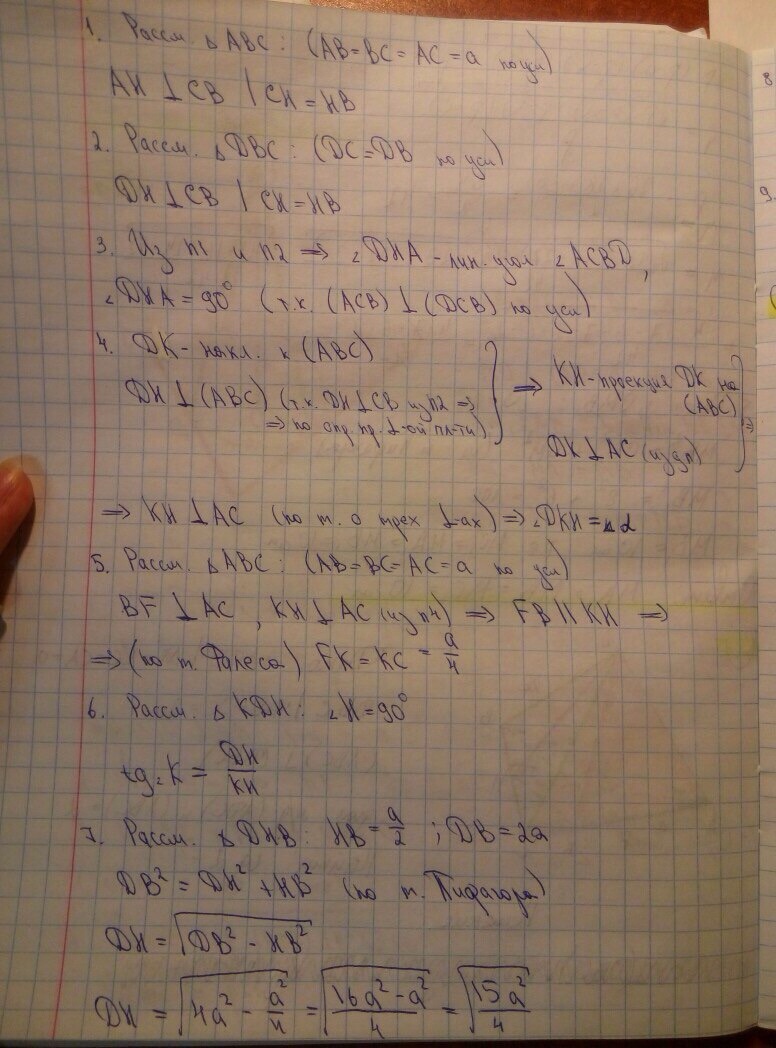 1. Рассм. △ABC: (AB=BC=AC=a по усл)
AH⊥CB / CH=HB
2. Рассм. △DBC: (DC=DB по усл)
DH⊥CB / CH=HB
3. Из п1 и п2 ⇒ ∠DHA - лин. угол ∠ACBD,
∠DHA=90° (т.к. (ACB)⊥(DCB) по усл)
4. DK - накл. к (ABC)
DH⊥(ABC) (т.к. DH⊥CB из п2 ⇒
⇒ по опр. пр. ⊥-ой пл-ти)
⇒ KH - проекция DK на
(ABC)
DK⊥AC (из дп) ⇒
⇒ KH⊥AC (по т. о трех ⊥-ах) ⇒ ∠DKH = ∠α
5. Рассм. △ABC: (AB=BC=AC=a по усл)
BF⊥AC, KH⊥AC (из п4) ⇒ FB||KH ⇒
⇒ (по т. Фалеса) FK=KC=a/4
6. Рассм. △KDH: ∠H=90°
tg∠K = DH/KH
7. Рассм. △DHB: HB=a/2; DB=2a
DB²=DH²+HB² (по т. Пифагора)
DH=√(DB²-HB²)
DH = √(4a² - a²/4) = √((16a²-a²)/4) = √(15a²/4)
8
9.